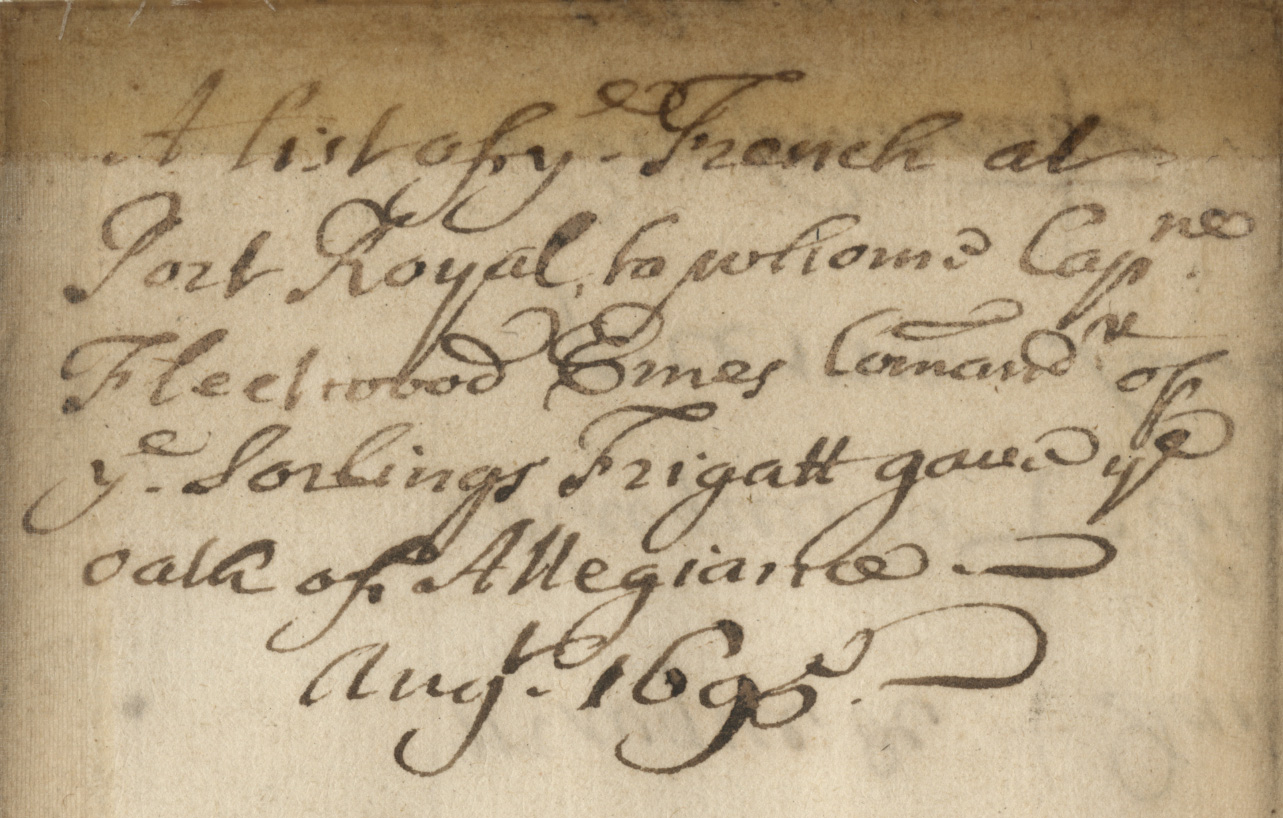 A list of yᵉ French at
Port Royal, to whome Capⁿᵉ
Fleetwood Emes Com̃andʳ of
yᵉ Sorlings Frigatt gave yᵉ
oath of Allegiance
Augᵗ 1695